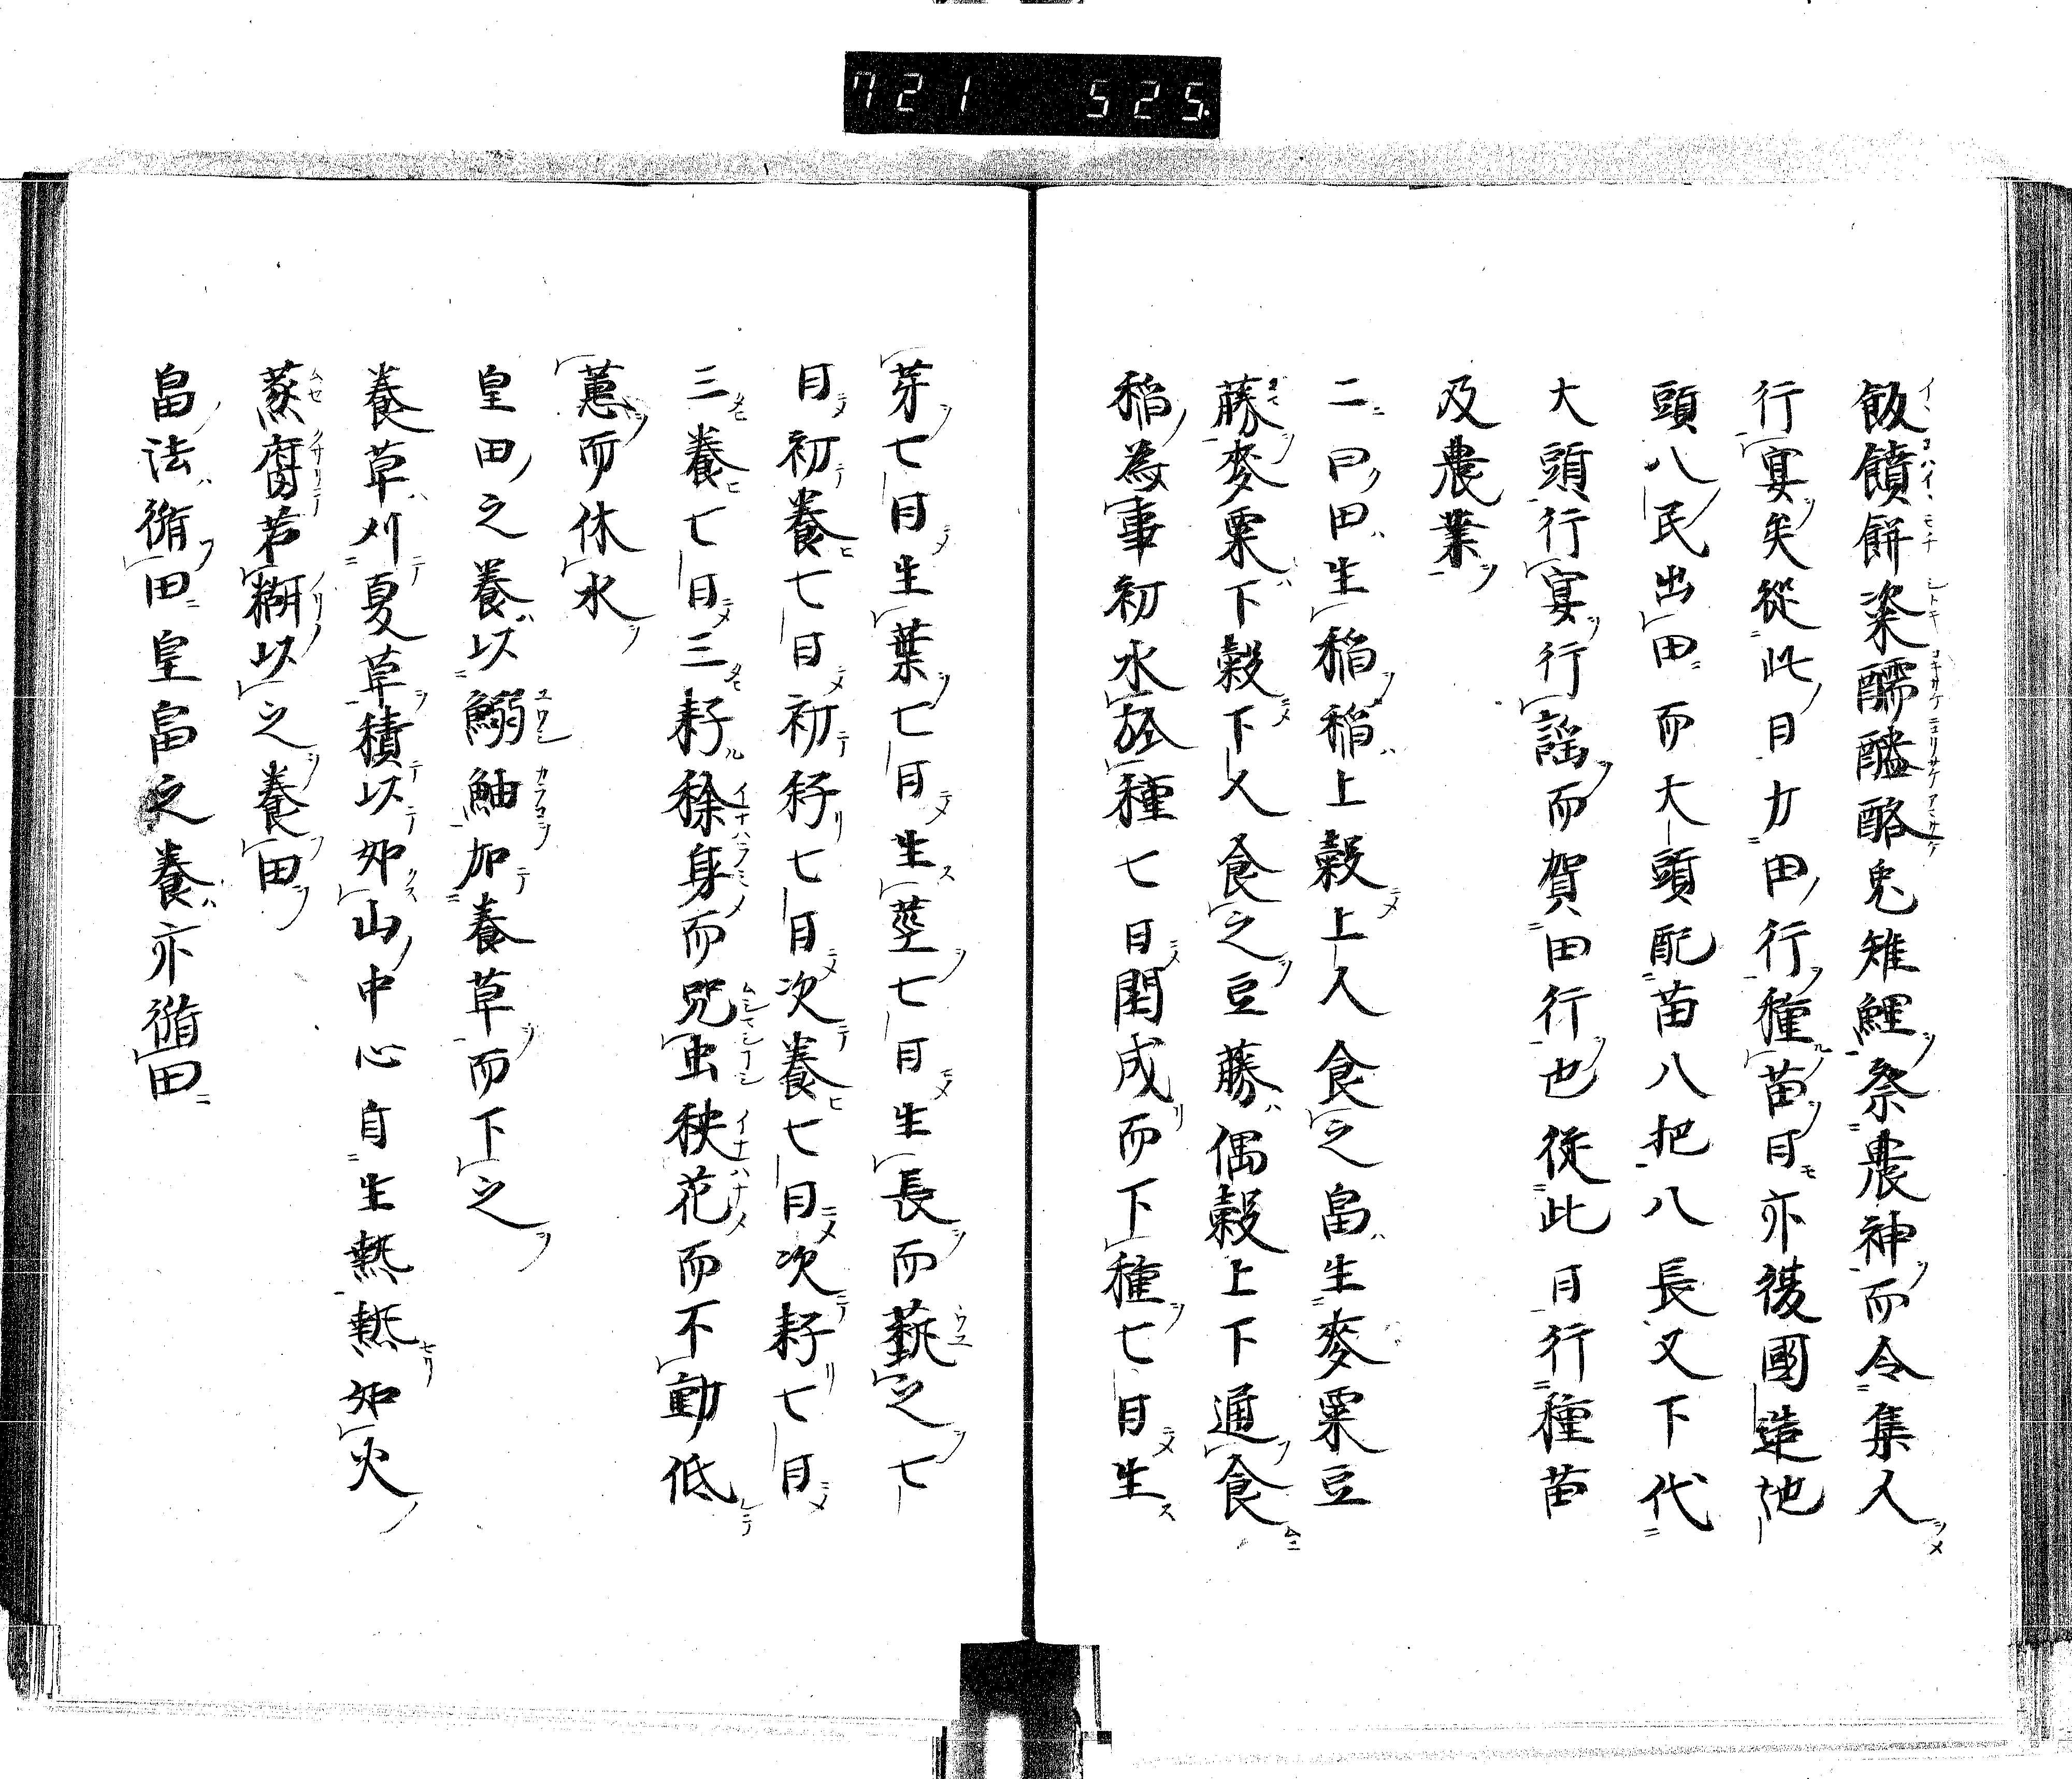 721 525.
飯饙餅粢醹醯酪兎雉鯉祭農神而令集人
行宴矣從此日力田行種苗日亦後國造地
頭八民出田而大頭配苗八把八長又下代
大頭行宴行謡而賀田行也従此日行種苗
及農業
二曰田生稲稲上穀上人食之畠生麥粟豆
藤麥粟下穀下人食之豆藤偶穀上下通食
稲為事初水於種七日閏成而下種七日生
芽七日生葉七日生莖七日生長而蓺之七
日初養七日初秄七日次養七日次耔七日
三養七日三耔稌身而咒虫秧花而不動低
蕙而休水
皇田之養以鰯鮋加養草而下之
養草刈夏草積以如山中心自生熱熱如火
蒸腐若糊以之養田
畠法循田皇畠之養亦循田